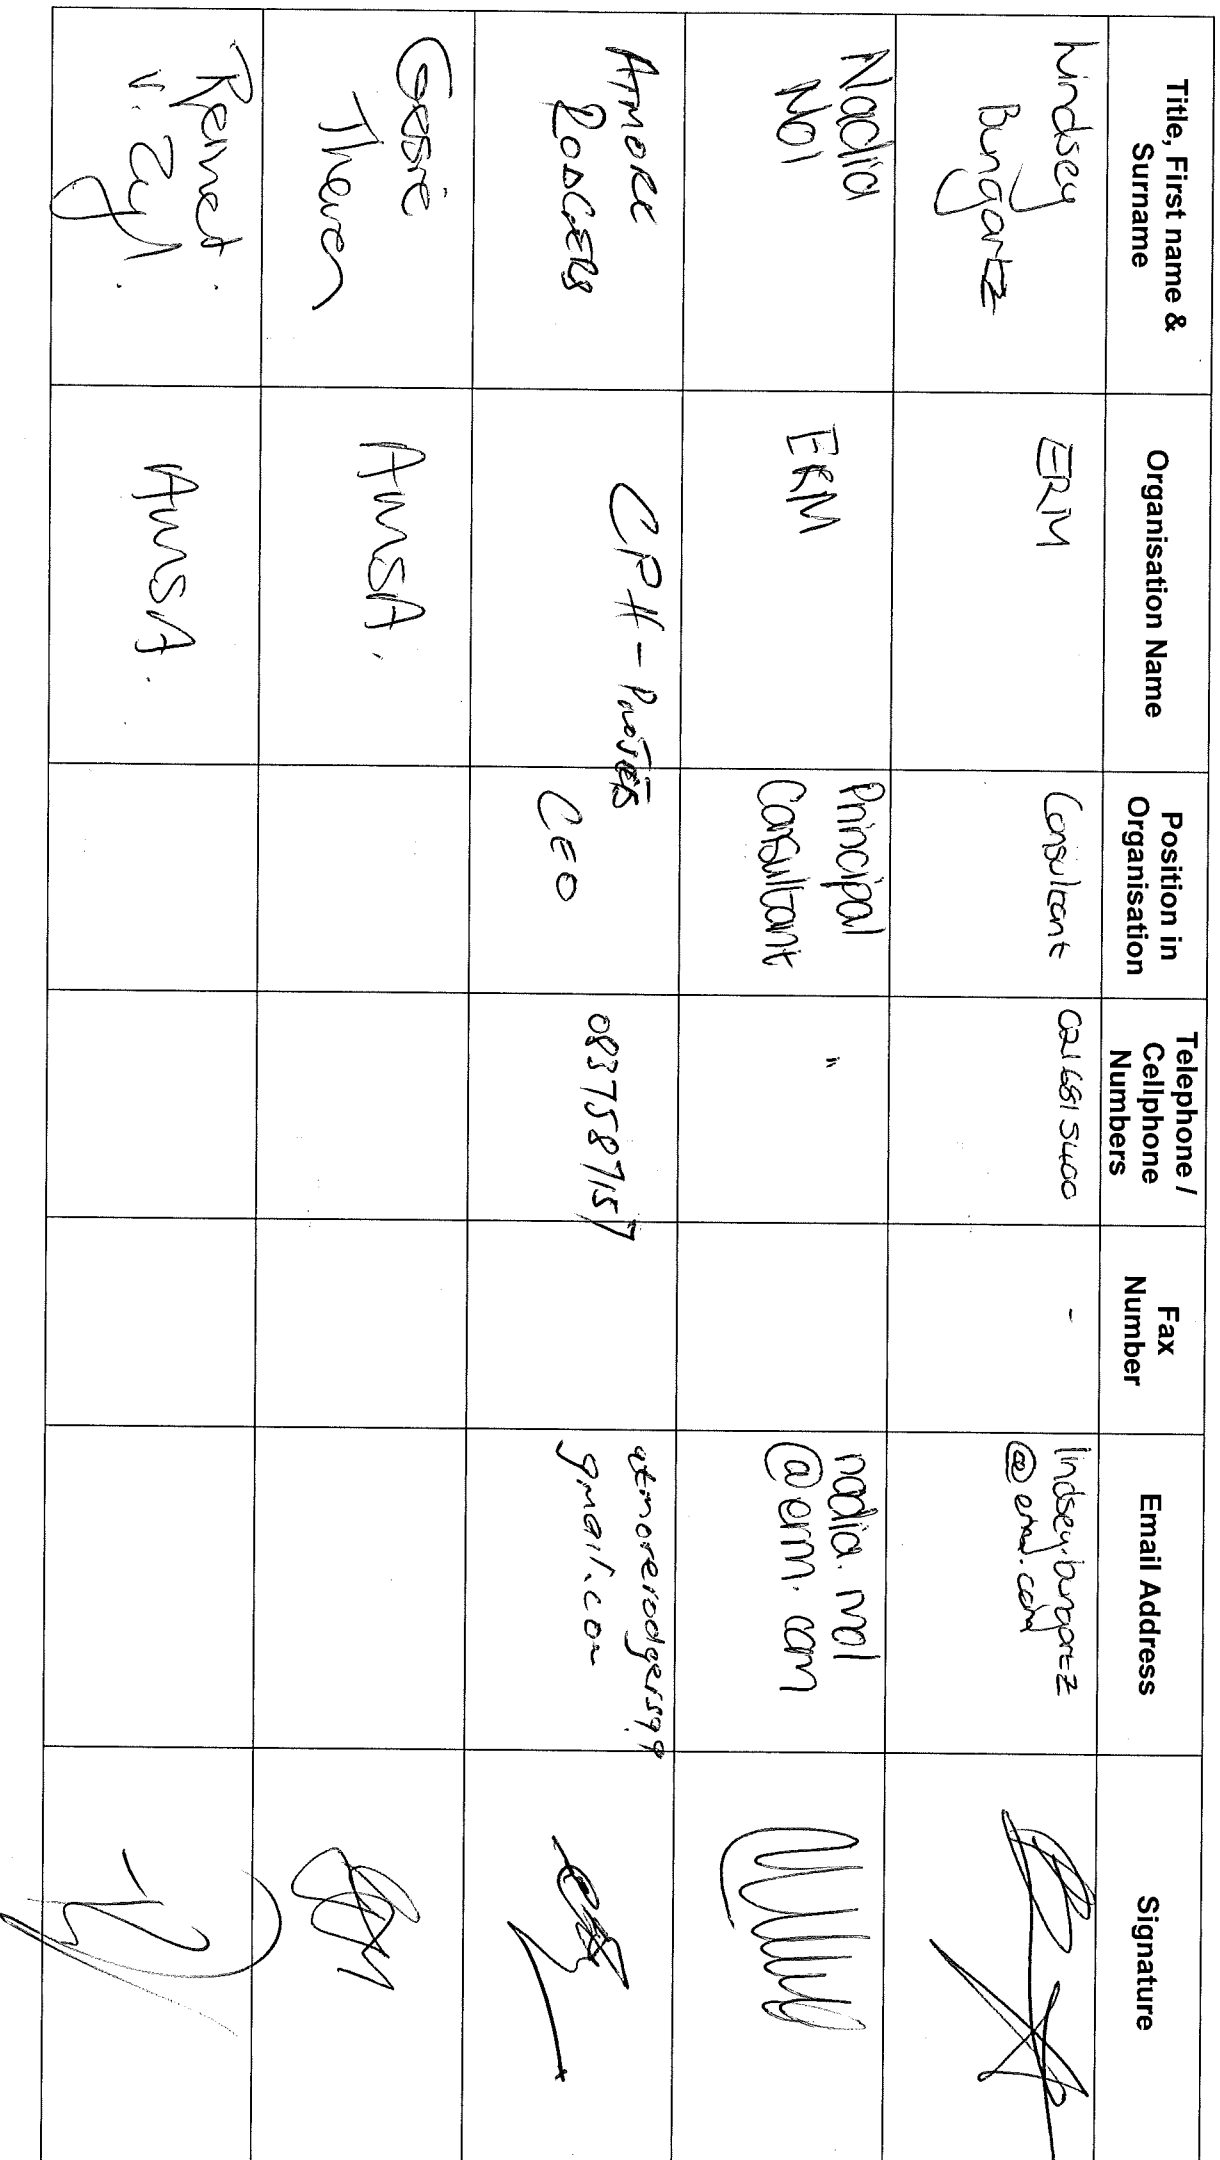 Title, First name &
Surname
Organisation Name
Position in
Organisation
Telephone /
Cellphone
Numbers
Fax
Number
Email Address
Signature
Lindsey
Bungartz
ERM
Consultant
021 681 5400
-
lindsey.bungartz
@erm.com
Nadia
Mol
ERM
Principal
Consultant
"
nadia.mol
@erm.com
ATMORE
RODGERS
CPH-
CEO
0837587157
atmorerodgers99
gmail.com
Theron
AMSA.
v. Zyl.
AMSA.